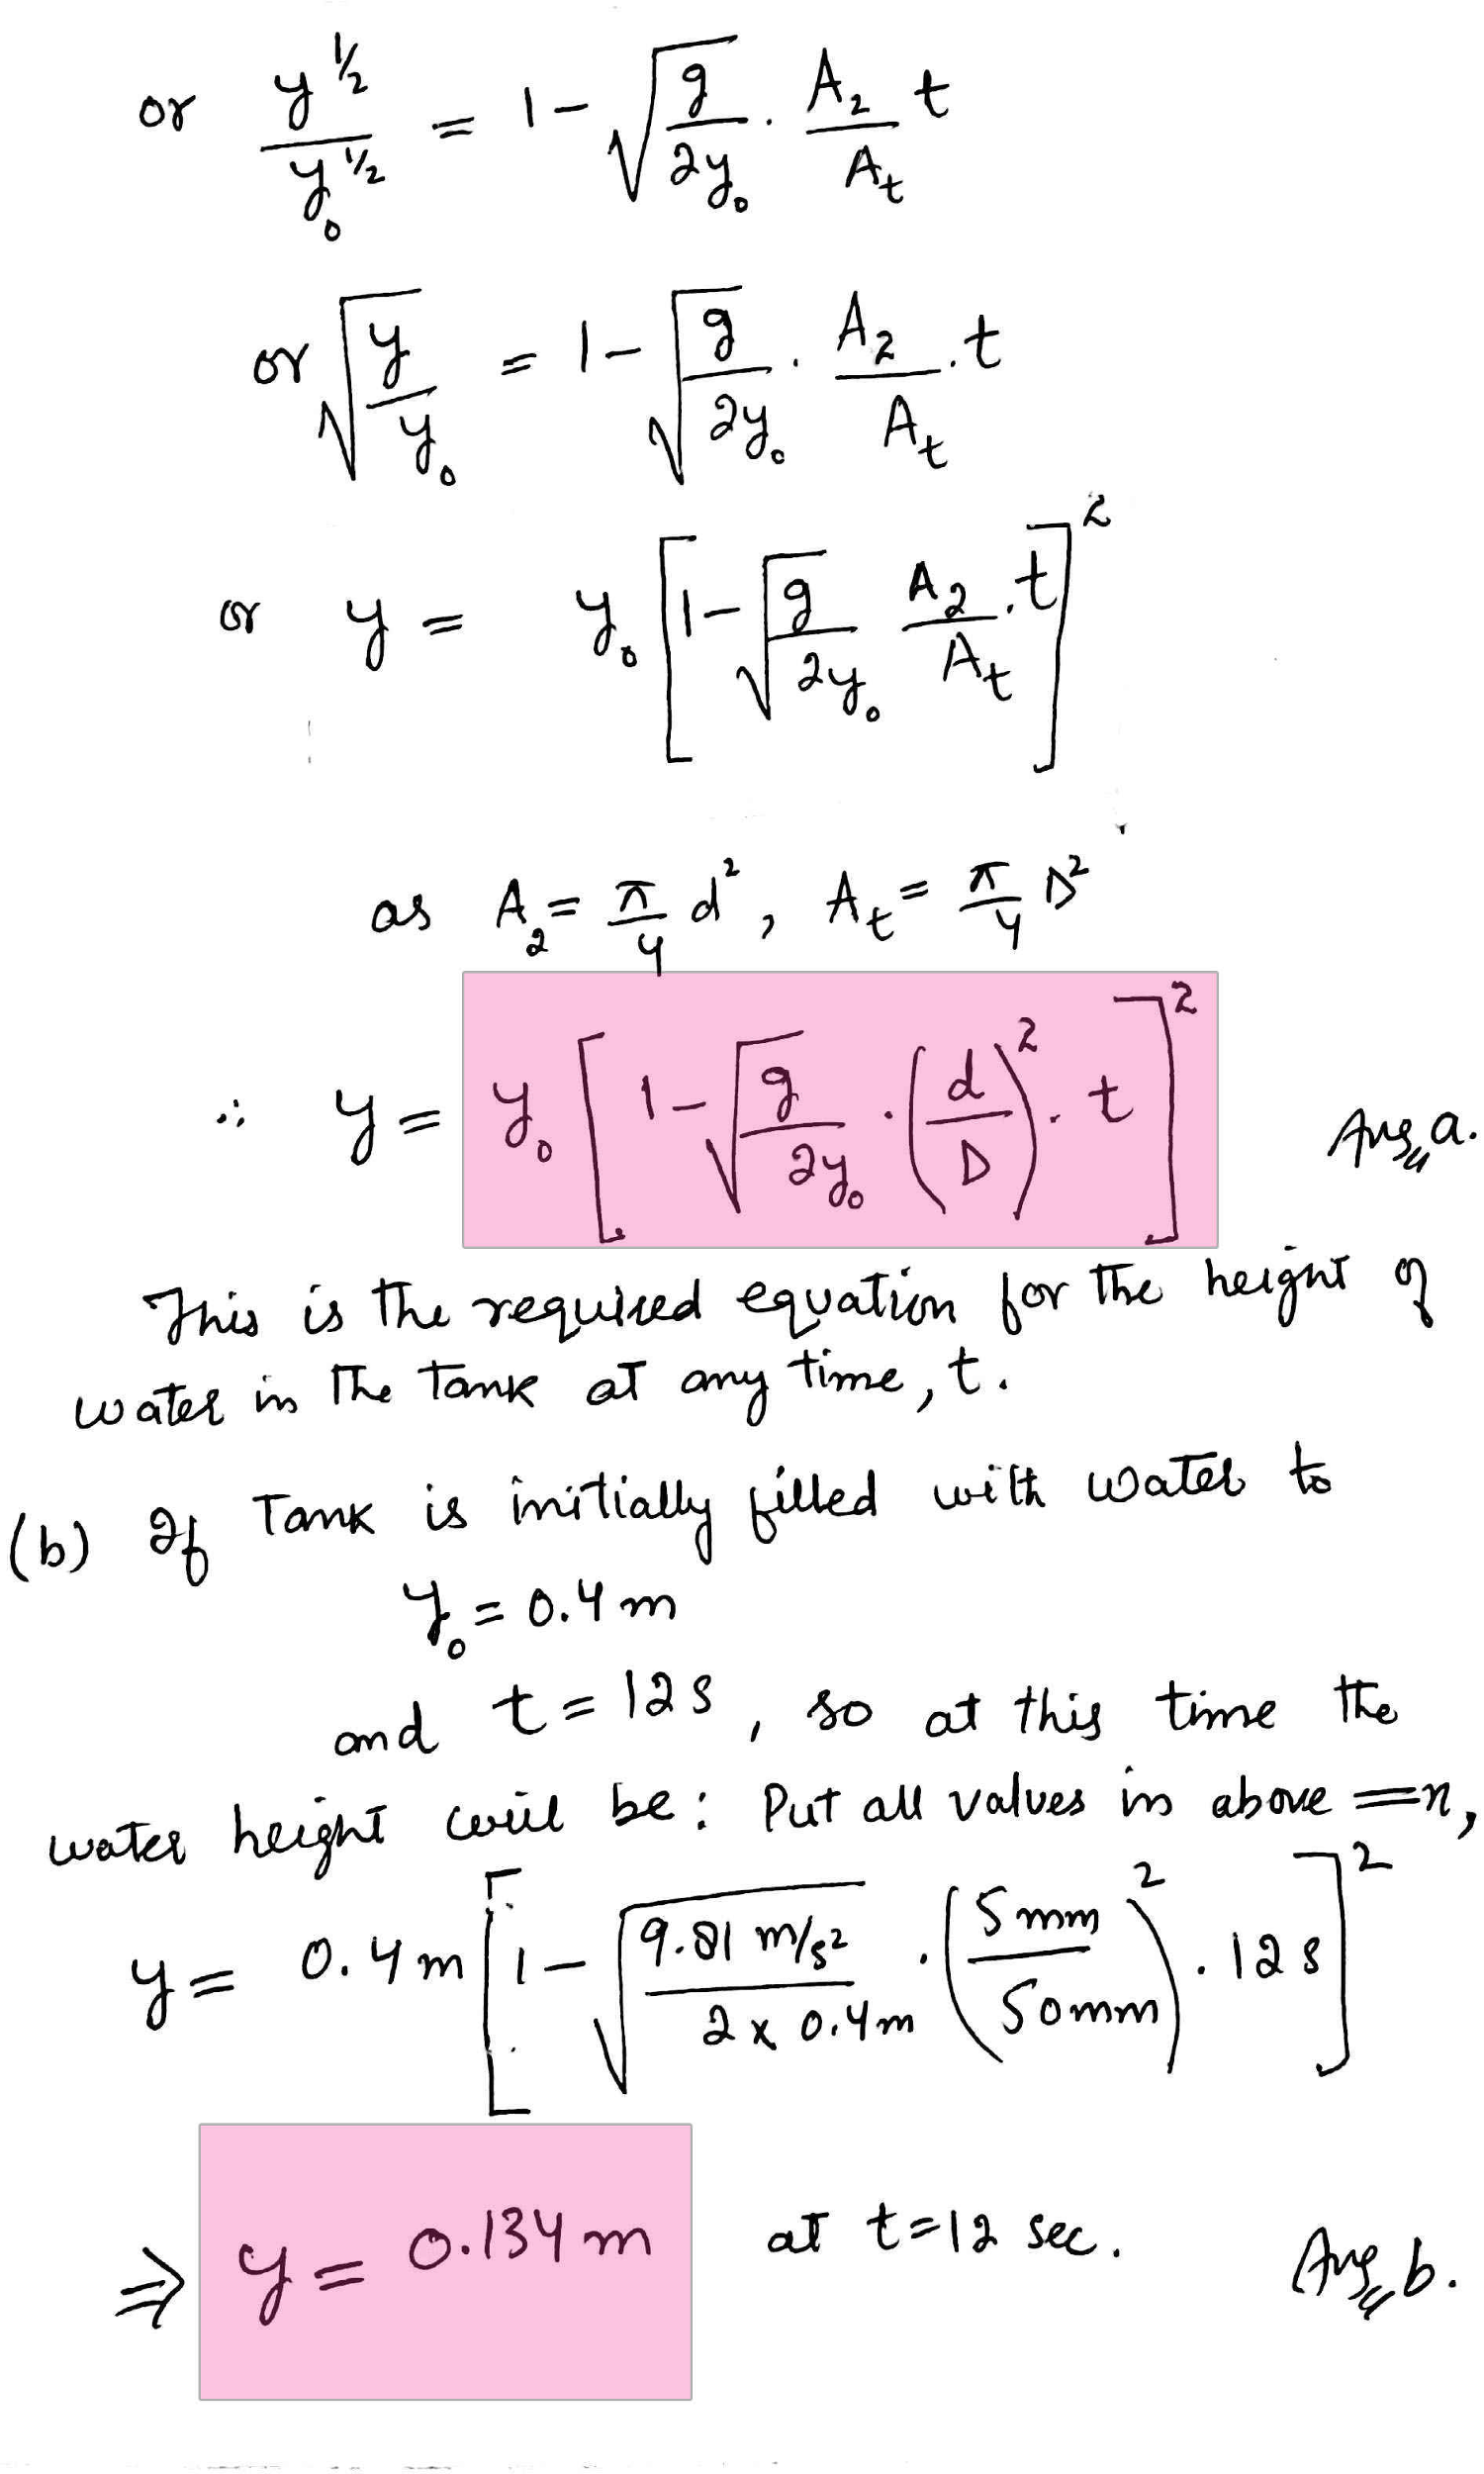 or y^{1/2} / y₀^{1/2} = 1 - √(g / 2y₀) · A₂ / A_t t
or √(y / y₀) = 1 - √(g / 2y₀) · A₂ / A_t · t
or y = y₀ [1 - √(g / 2y₀) A₂ / A_t · t]²
as A₂ = π/4 d², A_t = π/4 D²
∴ y = y₀ [1 - √(g / 2y₀) · (d / D)² · t]² Ans a.
This is the required equation for the height of
water in the tank at any time, t.
(b) If Tank is initially filled with water to
y₀ = 0.4 m
and t = 12 s, so at this time the
water height will be: Put all values in above =n,
y = 0.4 m [1 - √(9.81 m/s² / 2 x 0.4 m) · (5 mm / 50 mm)² · 12 s]²
⇒ y = 0.134 m at t = 12 sec. Ans b.